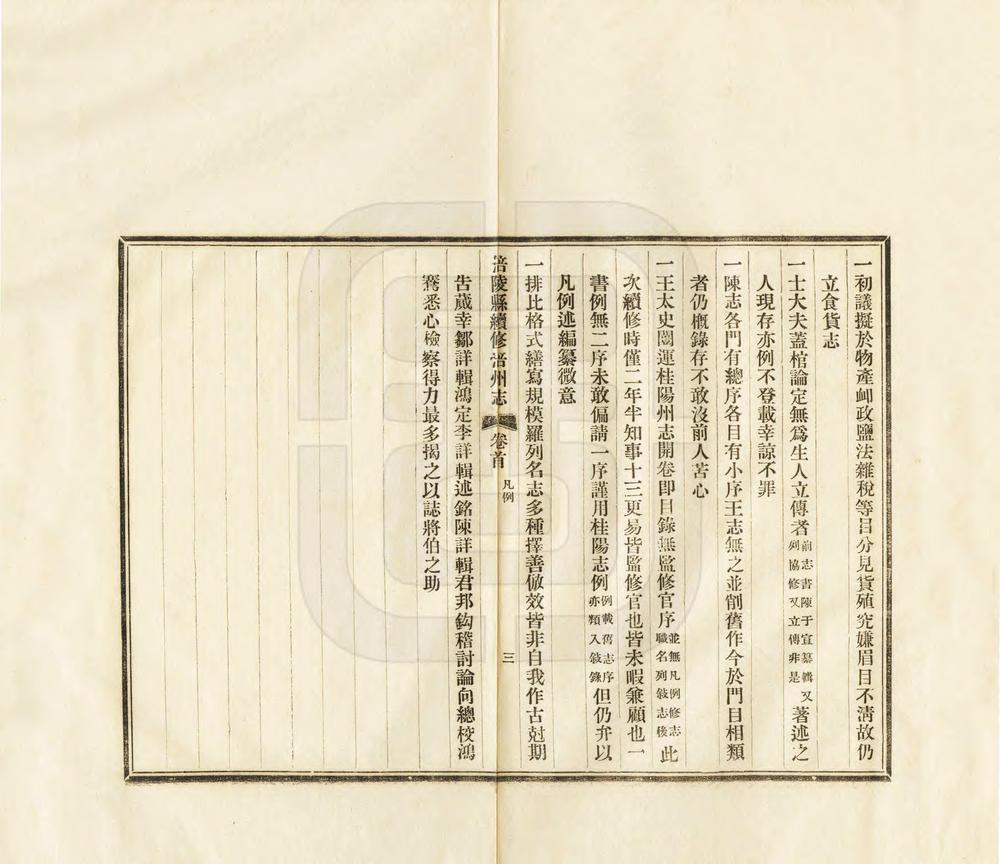 一初議擬於物產卹政鹽法雜稅等目分見貨殖究嫌眉目不淸故仍
立食貨志
一士大夫蓋棺論定無爲生人立傳者前志書陳于宣纂輯又列協修又立傳非是著述之
人現存亦例不登載幸諒不罪
一陳志各門有總序各目有小序王志無之並削舊作今於門目相類
者仍槪錄存不敢沒前人苦心
一王太史闓運桂陽州志開卷卽目錄無監修官序並無凡例修志職名列敍志後此
次續修時僅二年半知事十三更易皆監修官也皆未暇兼顧也一
書例無二序未敢偏請一序謹用桂陽志例例載舊志序亦類入敍錄但仍弁以
凡例述編纂微意
一排比格式繕寫規模羅列名志多種擇善倣效皆非自我作古尅期
涪陵縣續修涪州志 卷首 凡例 三
吿蕆幸鄒詳輯鴻定李詳輯述銘陳詳輯君邦鈎稽討論向總校鴻
騫悉心檢察得力最多揭之以誌將伯之助